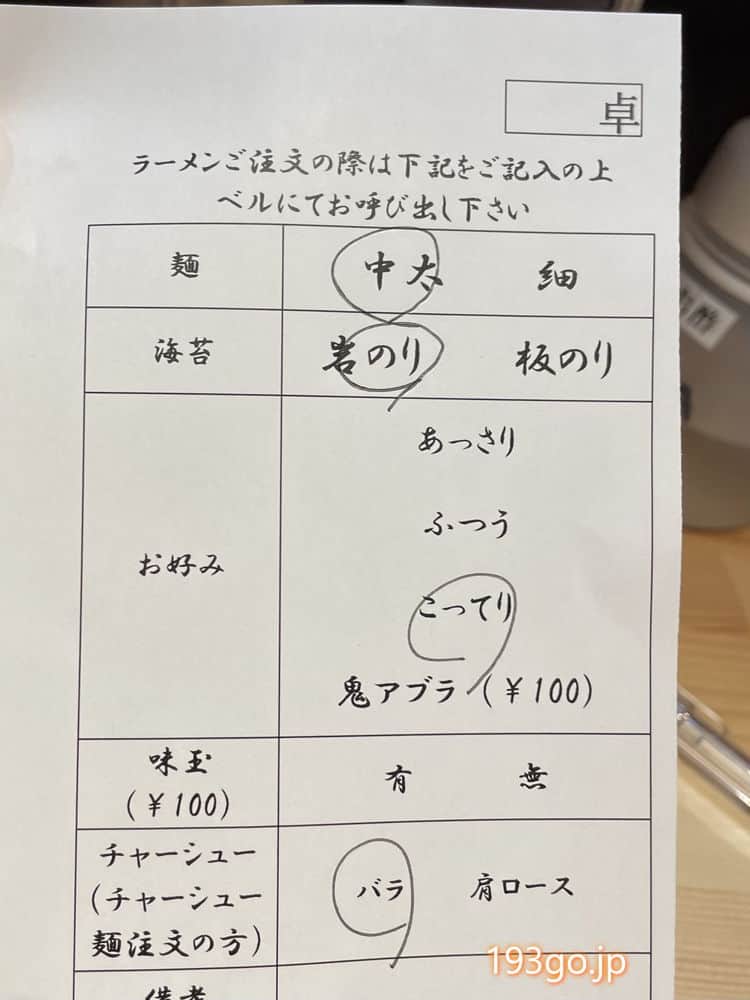 卓
ラーメンご注文の際は下記をご記入の上
ベルにてお呼び出し下さい
麺 中太 細
海苔 岩のり 板のり
お好み
あっさり
ふつう
こってり
鬼アブラ（￥100）
味玉
（￥100） 有 無
チャーシュー
（チャーシュー
麺注文の方） バラ 肩ロース
備考
193go.jp